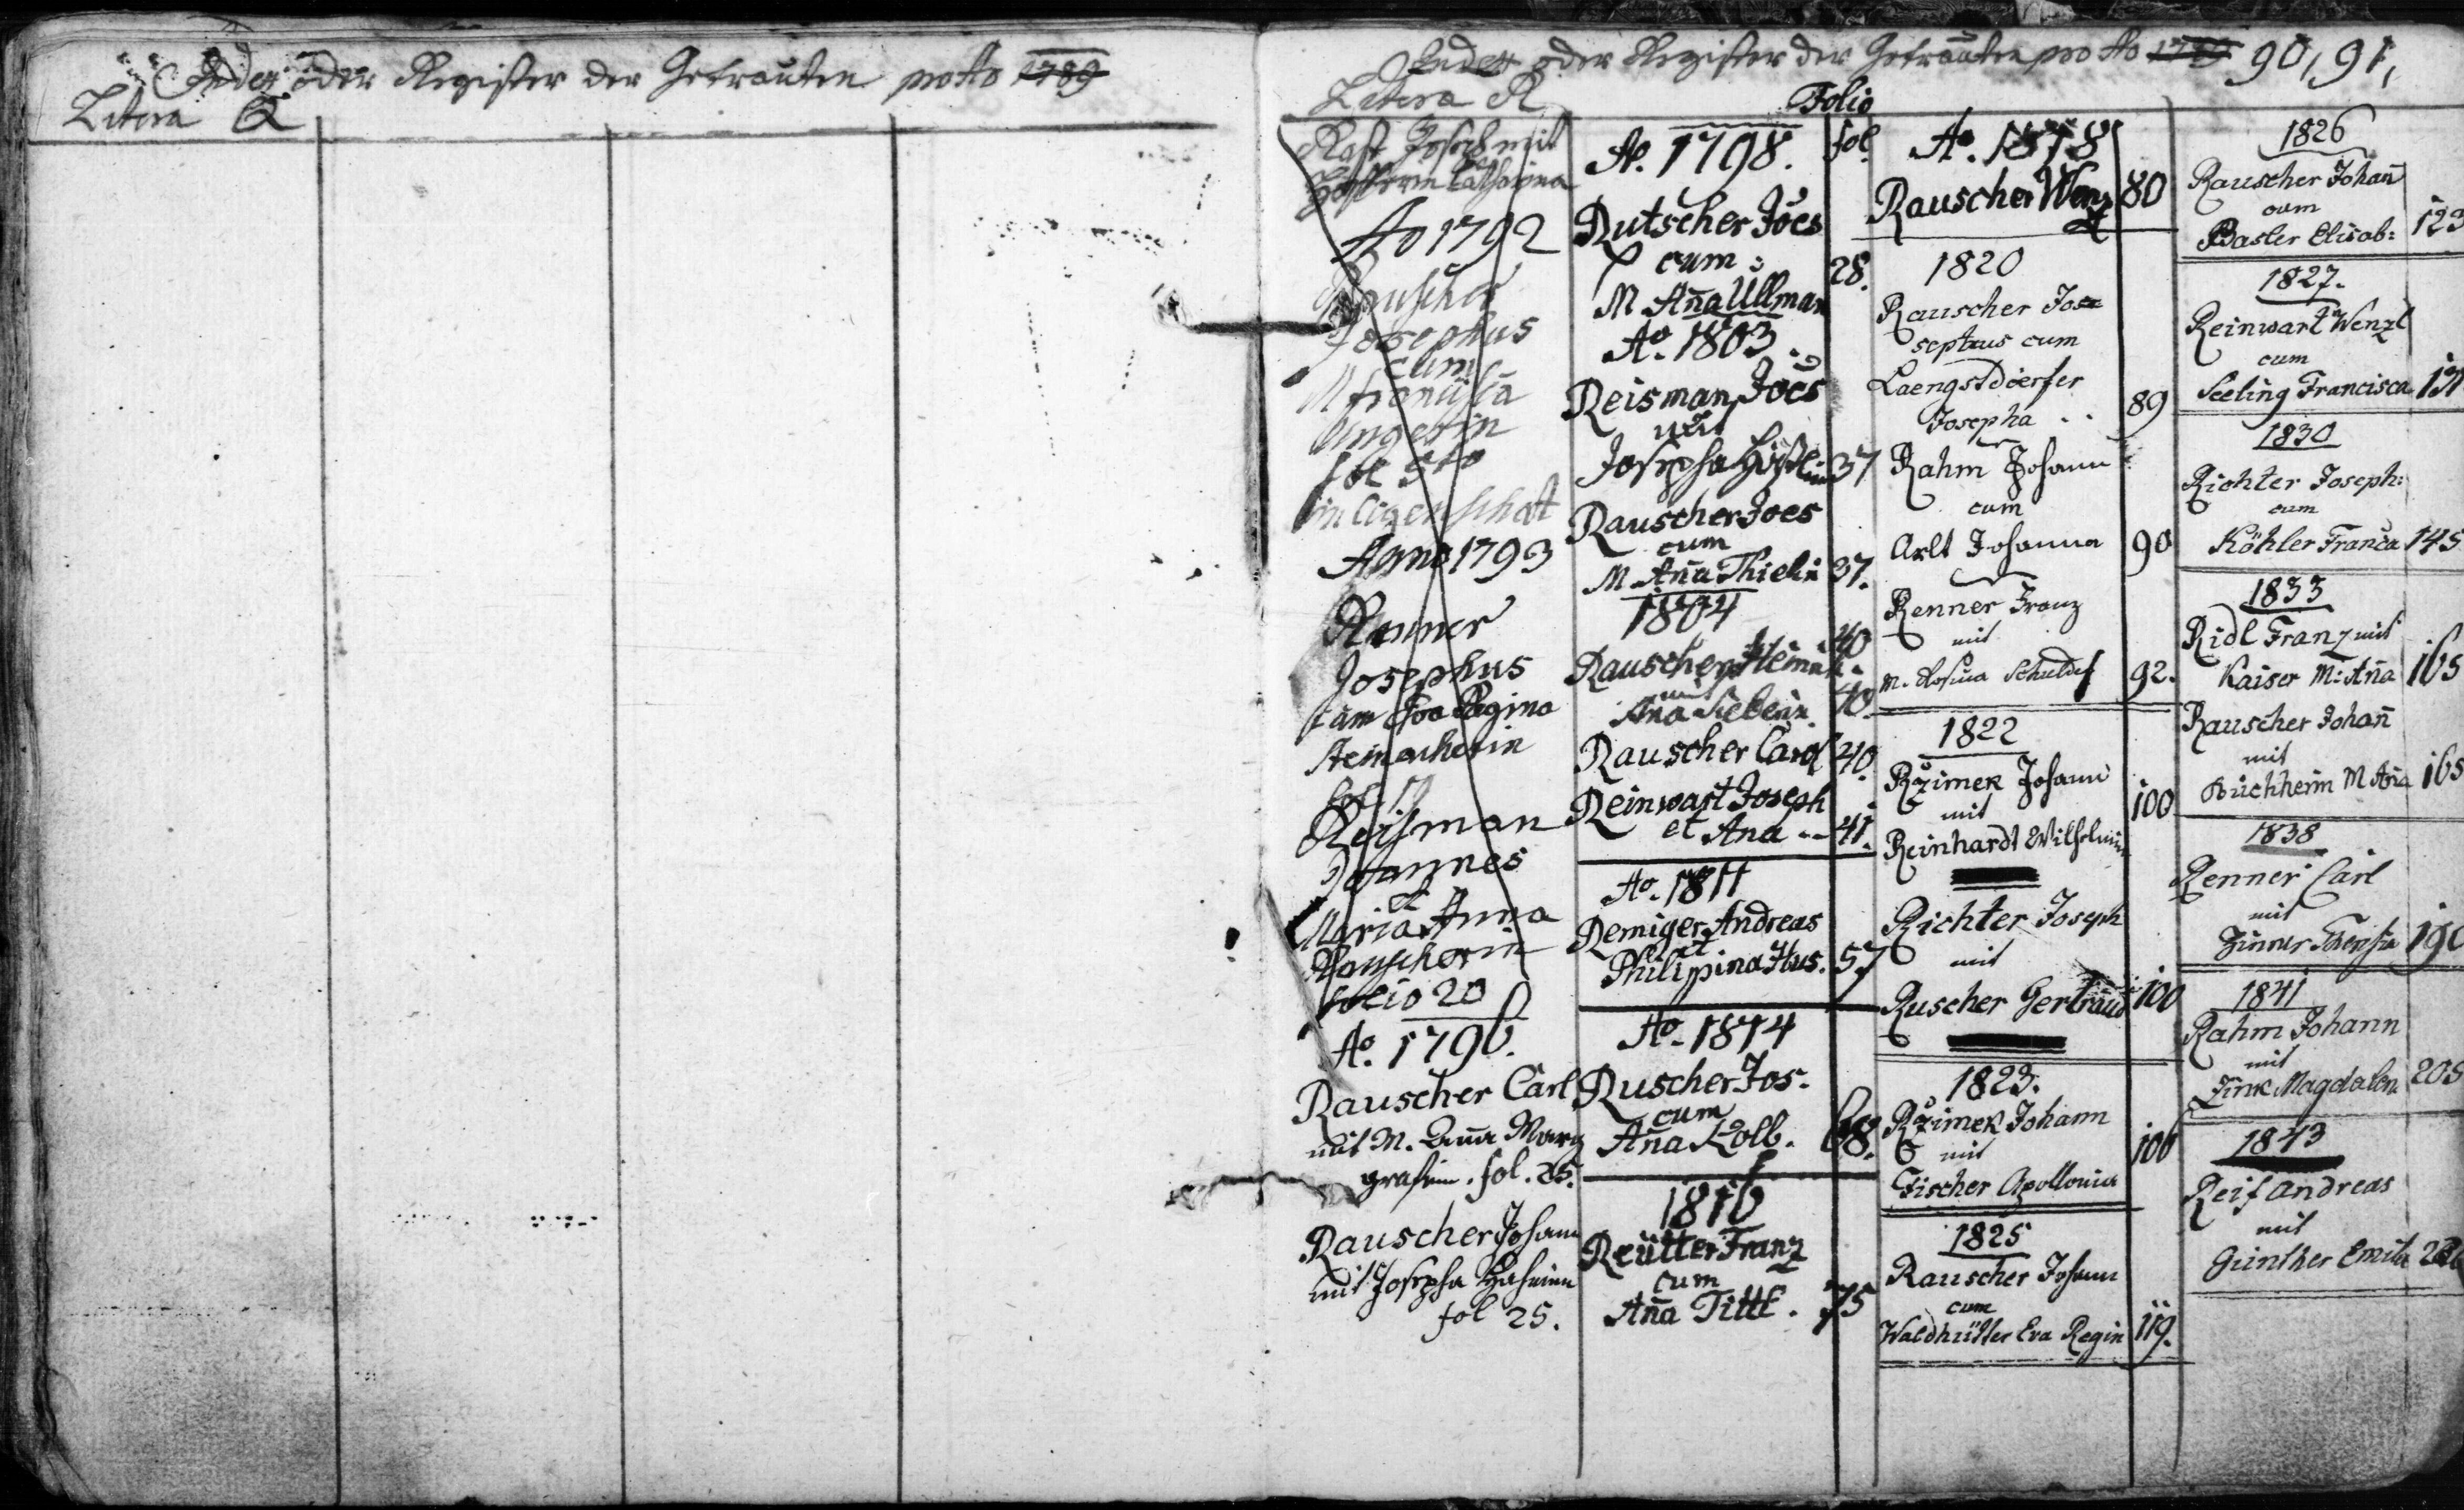 Index oder Register der Getrauten pro Ao 1789
Litera Q
Index oder Register der Getrauten pro Ao 1789 90, 91,
Litera R
Folio
Rast Joseph mit
Catharina
Ao 1792
Rauscher
Josephus
cum
Ungerin
Anno 1793
Renner
Josephus
cum Eva Regina
Reisman
Johannes
et
Maria Anna
Rauscherin
folio 20
Ao. 1796.
Rauscher Carl
mit M. Anna Marg
grafin. fol. 25.
Rauscher Johann
mit Josepha
fol 25.
Ao. 1798. fol.
Rutscher Joes
cum
M Aña Ullman 28.
Ao. 1803.
Reisman Joes
mit
Josepha 37
Rauscher Joes
cum
M Aña Thielin 37.
1804
Rauscher 40
mit
Ana 40
Rauscher Carl 40.
Reinwart Joseph
et Ana -- 41.
Ao. 1811
Remiger Andreas
et
Philippina Hus. 57
Ao. 1814
Ruscher Jos.
cum
Aña Kolb. 68.
1816
Reütter Franz
cum
Aña Tittl. 75
Ao. 1818
Rauscher Wenz 80
1820
Rauscher Jose
sephus cum
Laengstdoerfer
Josepha .. 89
Rahm Johann
cum
Arlt Johanna 90
Renner Franz
mit
M. Rosina 92.
1822
Rzimek Johann
mit 100
Reinhardt Wilhelmin
Richter Joseph
mit
Ruscher Gertraud 100
1823.
Rzimek Johann
mit 106
Fischer Apollonia
1825
Rauscher Johann
cum
Waldhütter Eva Regin 119.
1826
Rauscher Johañ
cum
Basler Elisab: 123
1827.
Reinwart Wenzl
cum
Seeling Francisca
1830
Richter Joseph:
cum
Köhler Franca 145
1833
Ridl Franz mit
Kaiser M: Aña 165
Rauscher Johañ
mit
Buchheim M Aña 165
1838
Renner Carl
mit
Zinner Theresia 190
1841
Rahm Johann
mit
Zink Magdalen. 205
1843
Reif Andreas
mit
Günther Emilie